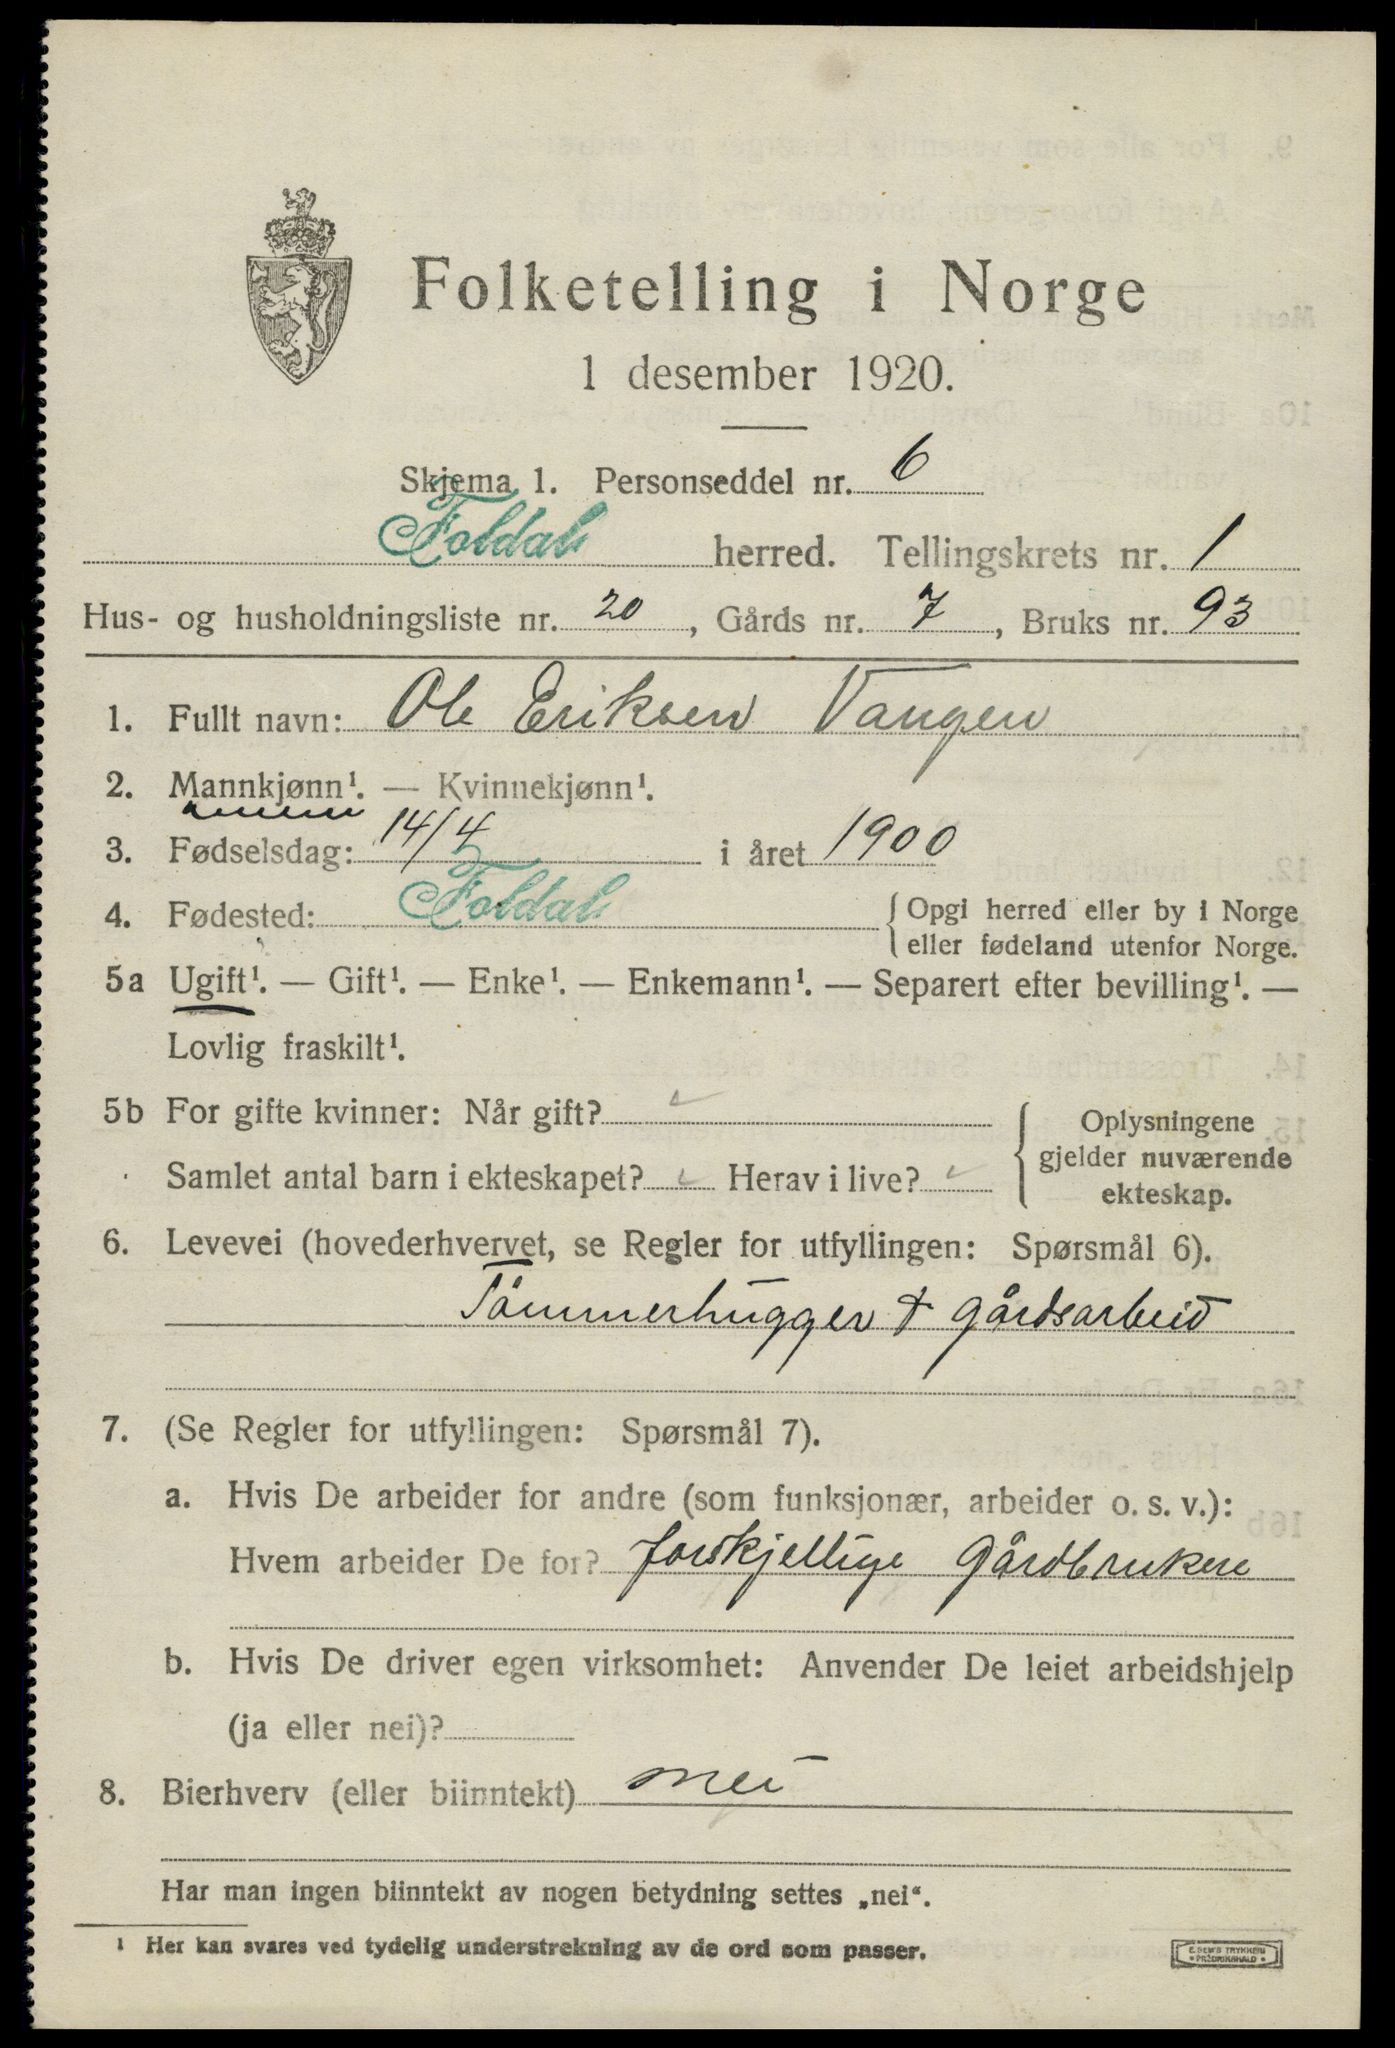 Folketelling i Norge
1 desember 1920.
Skjema 1. Personseddel nr. 6
Foldal herred. Tellingskrets nr. 1
Hus- og husholdningsliste nr. 20, Gårds nr. 7, Bruks nr. 93
1. Fullt navn: Ole Eriksen Vangen
2. Mannkjønn¹. — Kvinnekjønn¹.
3. Fødselsdag: 14/4 i året 1900
4. Fødested: Foldal { Opgi herred eller by i Norge
eller fødeland utenfor Norge.
5a Ugift¹. — Gift¹. — Enke¹. — Enkemann¹. — Separert efter bevilling¹. —
Lovlig fraskilt¹.
5b For gifte kvinner: Når gift? { Oplysningene
gjelder nuværende
Samlet antal barn i ekteskapet? Herav i live?
ekteskap.
6. Levevei (hovederhvervet, se Regler for utfyllingen: Spørsmål 6).
Tömmerhugger + gårdsarbeid
7. (Se Regler for utfyllingen: Spørsmål 7).
a. Hvis De arbeider for andre (som funksjonær, arbeider o. s. v.):
Hvem arbeider De for? forskjellige Gårdbrukere
b. Hvis De driver egen virksomhet: Anvender De leiet arbeidshjelp
(ja eller nei)?
8. Bierhverv (eller biinntekt) nei
Har man ingen biinntekt av nogen betydning settes „nei“.
¹ Her kan svares ved tydelig understrekning av de ord som passer.
E. SEM'S TRYKKERI
• FREDRIKSHALD •